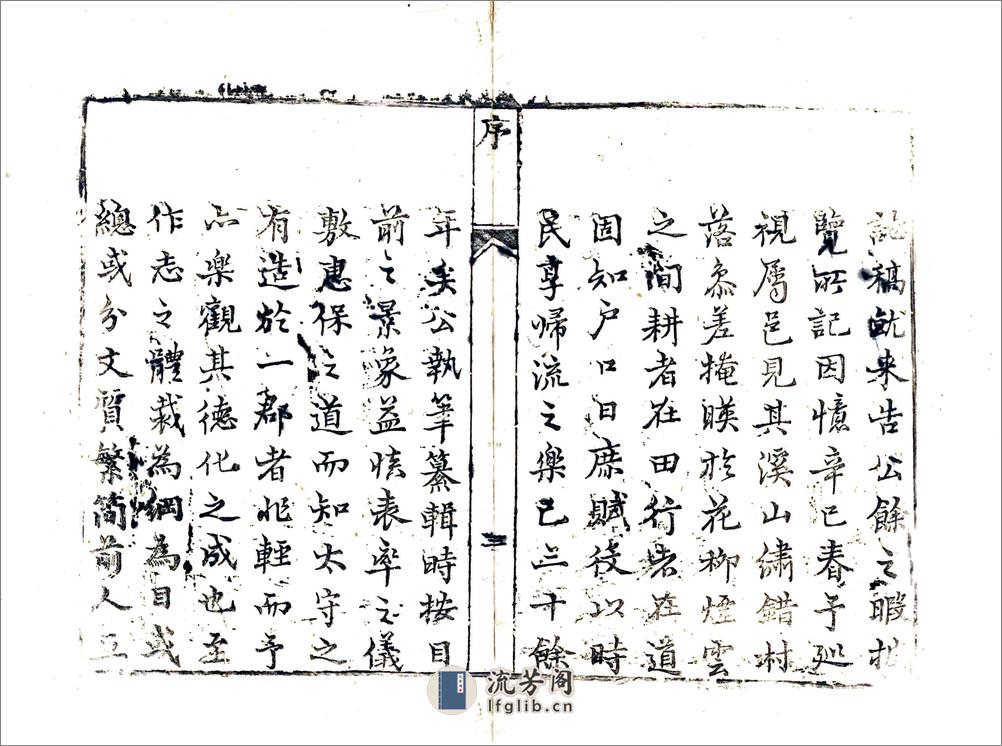 記稿就来告公餘之暇披
覽所記因憶辛巳春予巡
視屬邑見其溪山繡錯村
落叅差掩暎於花柳烟雲
之间耕者在田行者在道
固知户口日庶賦役以時
民享歸流之樂已三十餘
序
三
年矣公執筆纂輯時按目
前之景象益慎表率之儀
敷惠保之道而知太守之
有造於一郡者非輕而予
亦樂觀其德化之成也至
作志之體裁為綱為目或
總或分文質繁简前人
流芳阁
lfglib.cn